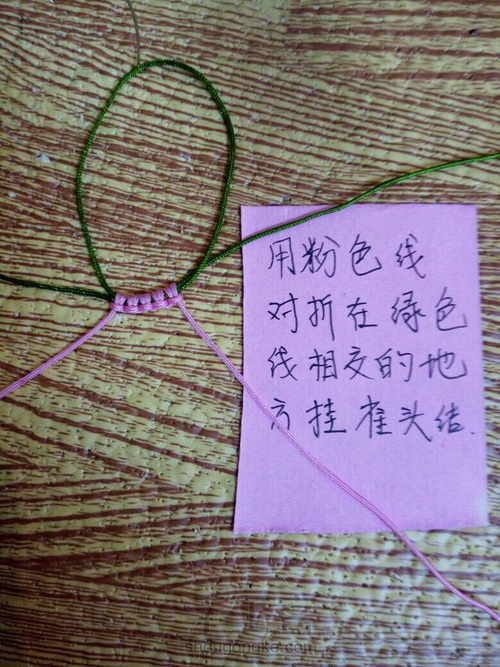 用粉色线
对折在绿色
线相交的地
方挂雀头结.
shougongke.com